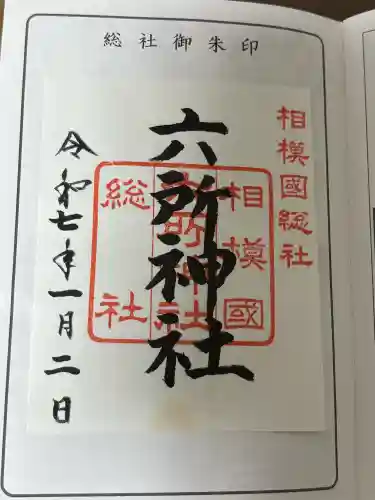 総社御朱印
相模國総社
六所神社
相模國
六所神社
総社
令和七年一月二日